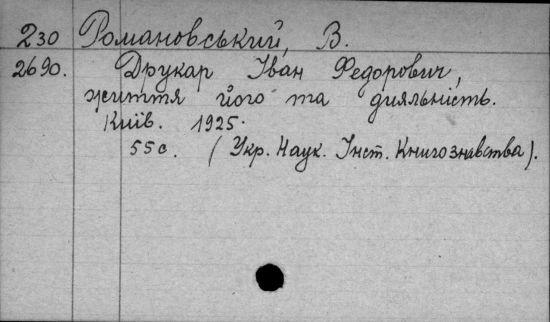 230 Романовський, В.
2690. Друкар Іван Федорович,
життя його та дияльність.
Київ. 1925.
55с. (Укр. Наук. Інст. Книгознавства).